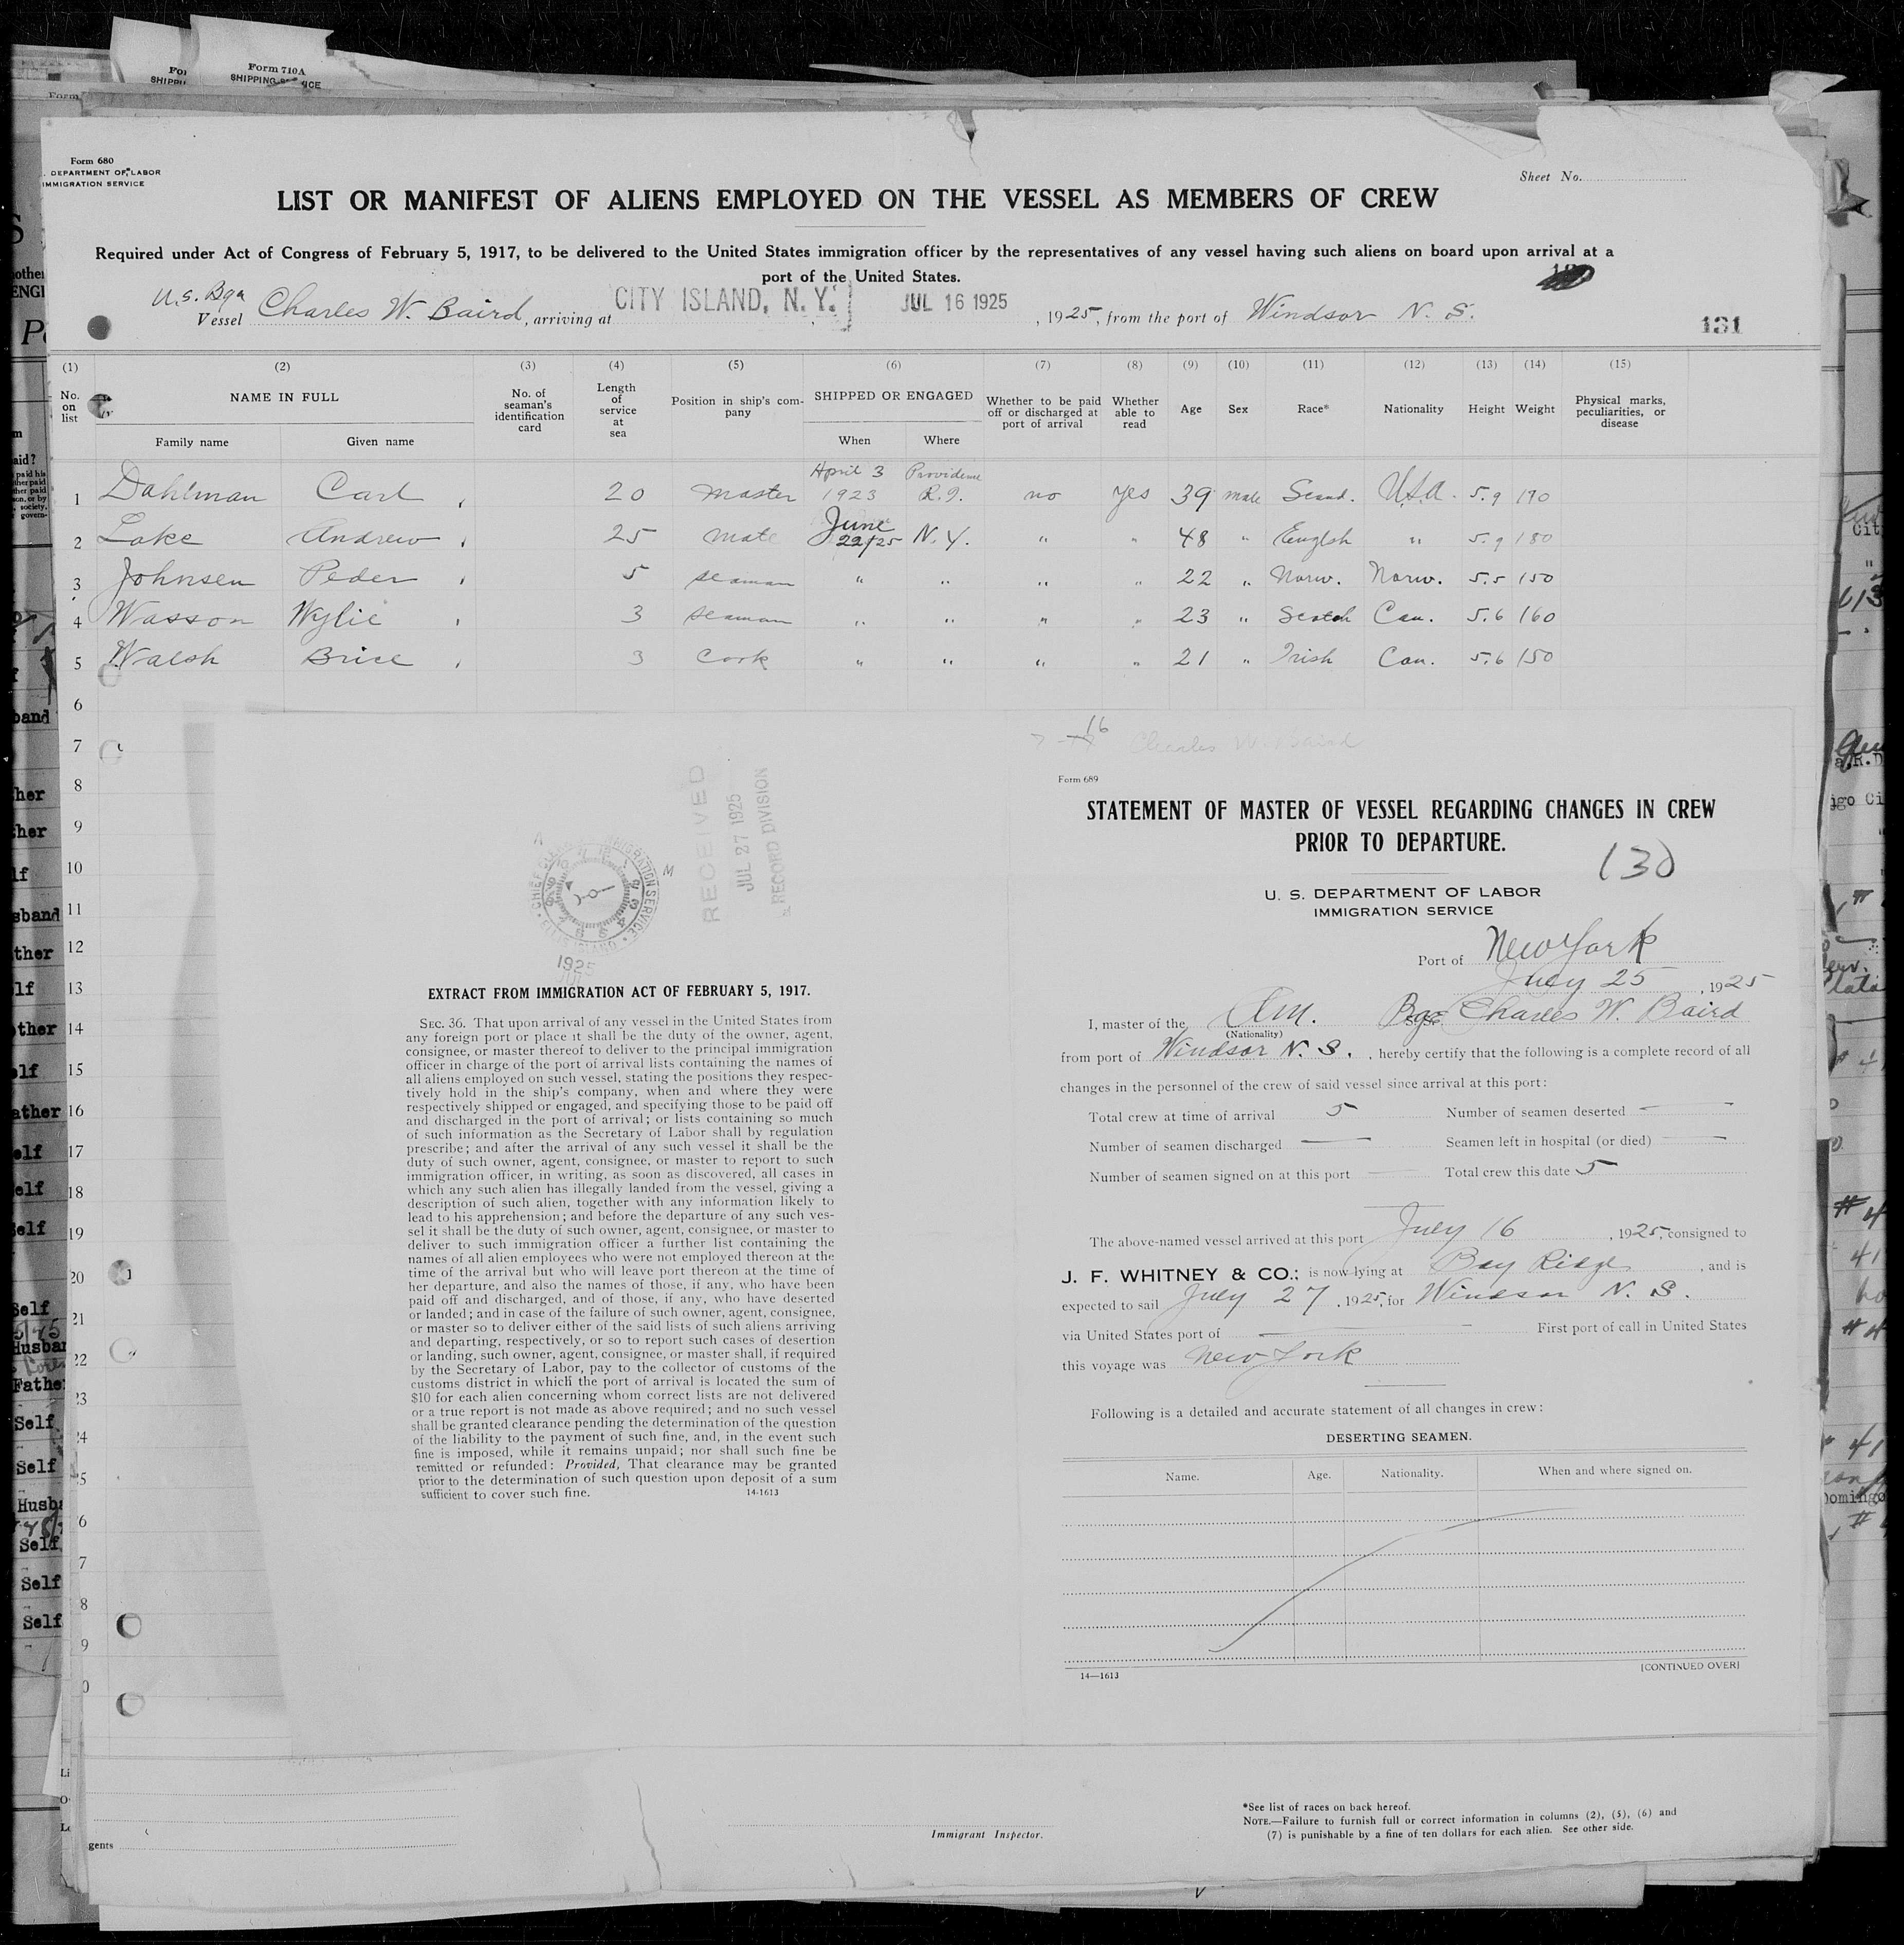 Form 710A
SHIPPING
Form 680
. DEPARTMENT OF LABOR
IMMIGRATION SERVICE
Sheet No.
LIST OR MANIFEST OF ALIENS EMPLOYED ON THE VESSEL AS MEMBERS OF CREW
Required under Act of Congress of February 5, 1917, to be delivered to the United States immigration officer by the representatives of any vessel having such aliens on board upon arrival at a
port of the United States.
U.S. Bge
Vessel Charles W. Baird, arriving at CITY ISLAND, N.Y. JUL 16 1925, 1925, from the port of Windsor N. S.
131
(1) (2) (3) (4) (5) (6) (7) (8) (9) (10) (11) (12) (13) (14) (15)
No. on list NAME IN FULL No. of seaman's identification card Length of service at sea Position in ship's company SHIPPED OR ENGAGED Whether to be paid off or discharged at port of arrival Whether able to read Age Sex Race* Nationality Height Weight Physical marks, peculiarities, or disease
Family name Given name When Where
1 Dahlman Carl 20 Master April 3 1923 Providence R.I. no yes 39 male Scand. USA. 5.9 190
2 Lake Andrew 25 Mate June 22/25 N.Y. " " 48 " English " 5.9 180
3 Johnsen Peder 5 seaman " " " " 22 " Norw. Norw. 5.5 150
4 Wasson Wylie 3 seaman " " " " 23 " Scotch Can. 5.6 160
5 Walsh Brice 3 Cook " " " " 21 " Irish Can. 5.6 150
6
7
8
9
10
11
12
13
14
15
16
17
18
19
20
21
22
23
24
25
6
7
8
9
0
RECEIVED
JUL 27 1925
RECORD DIVISION
1925
EXTRACT FROM IMMIGRATION ACT OF FEBRUARY 5, 1917.
SEC. 36. That upon arrival of any vessel in the United States from
any foreign port or place it shall be the duty of the owner, agent,
consignee, or master thereof to deliver to the principal immigration
officer in charge of the port of arrival lists containing the names of
all aliens employed on such vessel, stating the positions they respec-
tively hold in the ship's company, when and where they were
respectively shipped or engaged, and specifying those to be paid off
and discharged in the port of arrival; or lists containing so much
of such information as the Secretary of Labor shall by regulation
prescribe; and after the arrival of any such vessel it shall be the
duty of such owner, agent, consignee, or master to report to such
immigration officer, in writing, as soon as discovered, all cases in
which any such alien has illegally landed from the vessel, giving a
description of such alien, together with any information likely to
lead to his apprehension; and before the departure of any such ves-
sel it shall be the duty of such owner, agent, consignee, or master to
deliver to such immigration officer a further list containing the
names of all alien employees who were not employed thereon at the
time of the arrival but who will leave port thereon at the time of
her departure, and also the names of those, if any, who have been
paid off and discharged, and of those, if any, who have deserted
or landed; and in case of the failure of such owner, agent, consignee,
or master so to deliver either of the said lists of such aliens arriving
and departing, respectively, or so to report such cases of desertion
or landing, such owner, agent, consignee, or master shall, if required
by the Secretary of Labor, pay to the collector of customs of the
customs district in which the port of arrival is located the sum of
$10 for each alien concerning whom correct lists are not delivered
or a true report is not made as above required; and no such vessel
shall be granted clearance pending the determination of the question
of the liability to the payment of such fine, and, in the event such
fine is imposed, while it remains unpaid; nor shall such fine be
remitted or refunded: Provided, That clearance may be granted
prior to the determination of such question upon deposit of a sum
sufficient to cover such fine. 14-1613
16
Charles W. Baird
Form 689
STATEMENT OF MASTER OF VESSEL REGARDING CHANGES IN CREW
PRIOR TO DEPARTURE.
130
U. S. DEPARTMENT OF LABOR
IMMIGRATION SERVICE
Port of New York
July 25, 1925
I, master of the Am. Bge Charles W. Baird
(Nationality)
from port of Windsor N. S., hereby certify that the following is a complete record of all
changes in the personnel of the crew of said vessel since arrival at this port:
Total crew at time of arrival 5 Number of seamen deserted —
Number of seamen discharged — Seamen left in hospital (or died) —
Number of seamen signed on at this port — Total crew this date 5
The above-named vessel arrived at this port July 16, 1925, consigned to
J. F. WHITNEY & CO.; is now lying at Bay Ridge, and is
expected to sail July 27, 1925, for Windsor N. S.
via United States port of — First port of call in United States
this voyage was New York
Following is a detailed and accurate statement of all changes in crew:
DESERTING SEAMEN.
Name. Age. Nationality. When and where signed on.
14—1613 [CONTINUED OVER]
Immigrant Inspector.
*See list of races on back hereof.
NOTE.—Failure to furnish full or correct information in columns (2), (5), (6) and
(7) is punishable by a fine of ten dollars for each alien. See other side.